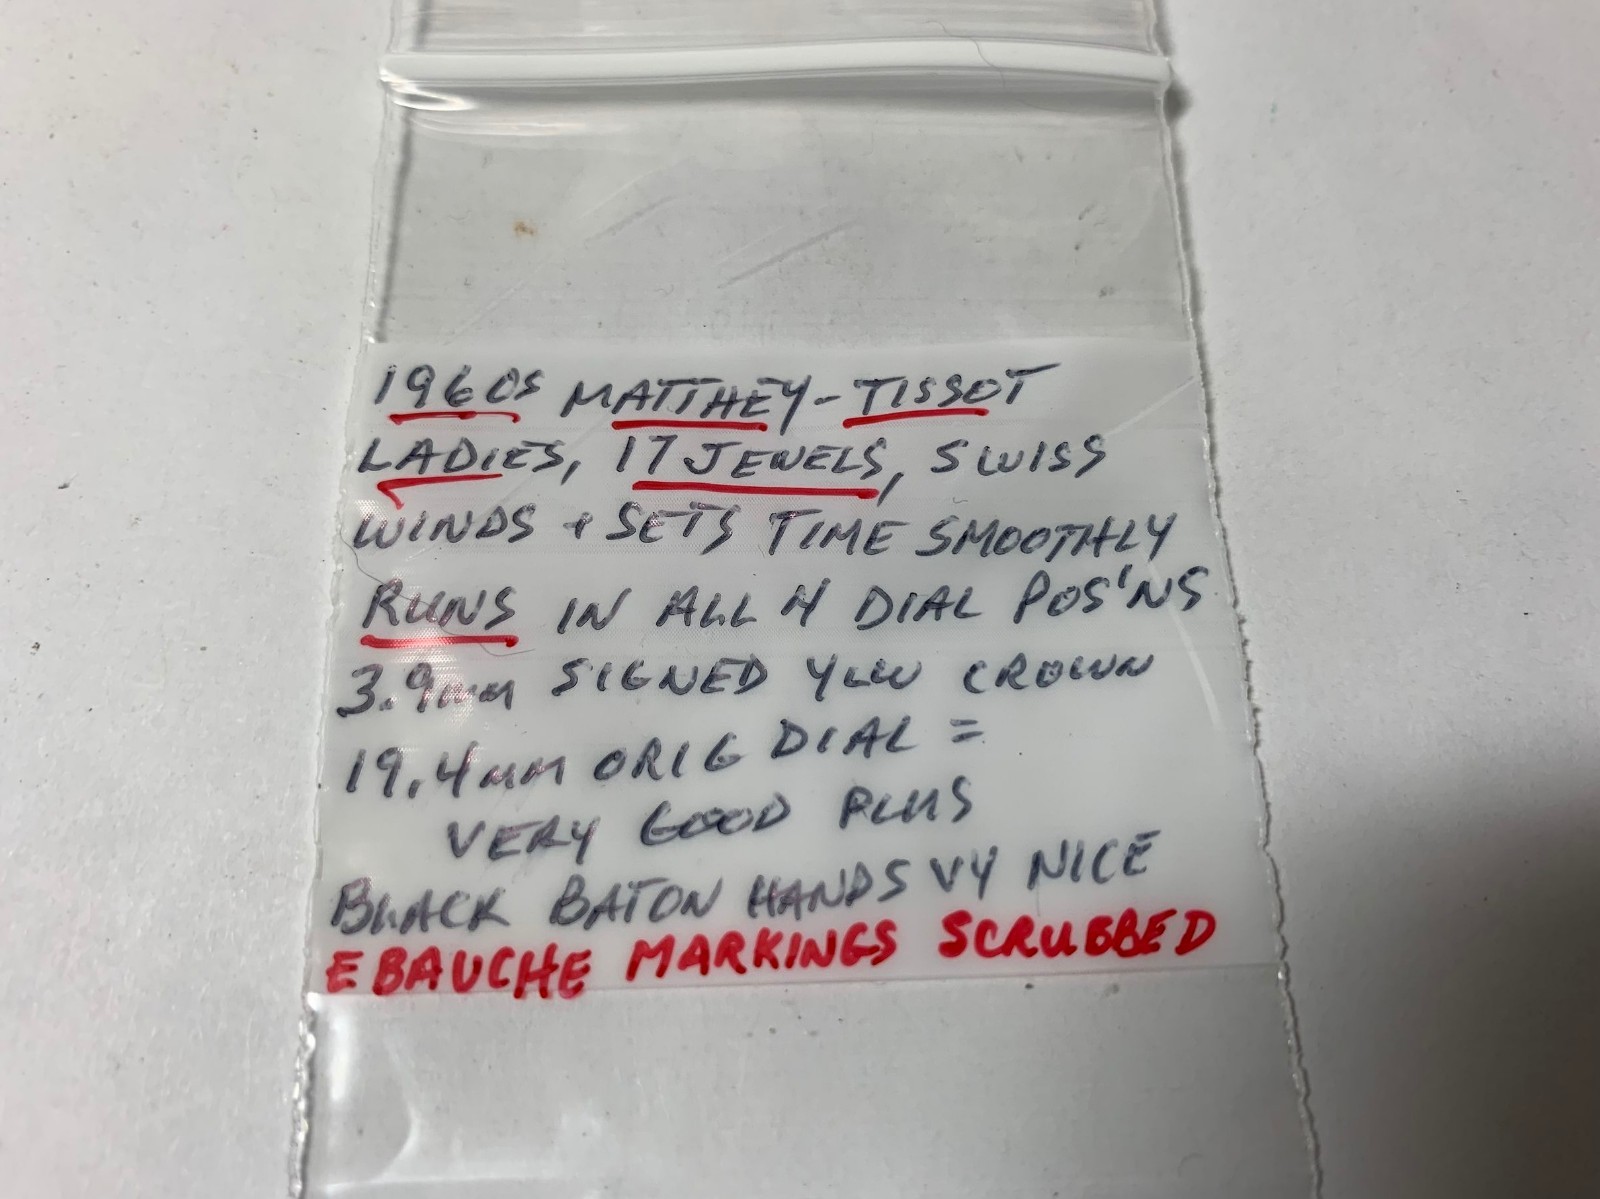 1960s MATTHEY-TISSOT
LADIES, 17 JEWELS, SWISS
WINDS + SETS TIME SMOOTHLY
RUNS IN ALL 4 DIAL POS'NS
3.9mm SIGNED YLW CROWN
19.4mm ORIG DIAL =
VERY GOOD PLUS
BLACK BATON HANDS VY NICE
EBAUCHE MARKINGS SCRUBBED